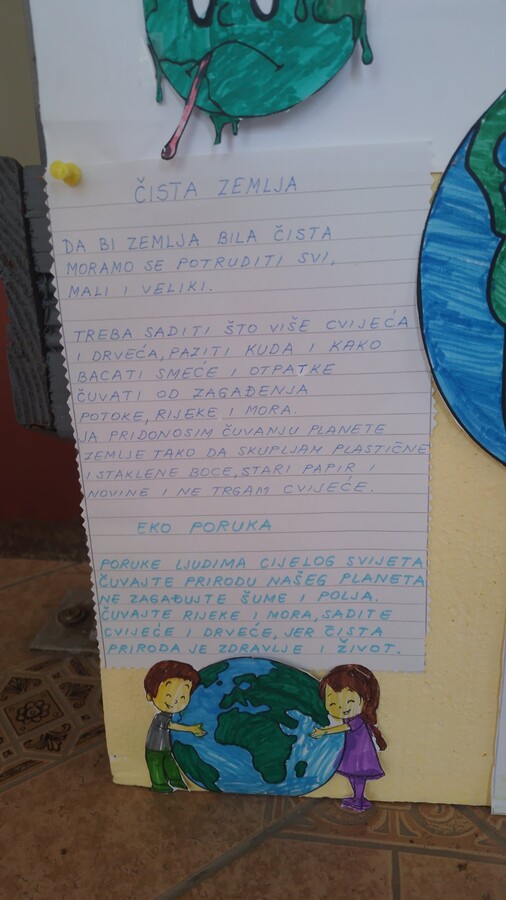 ČISTA ZEMLJA
DA BI ZEMLJA BILA ČISTA
MORAMO SE POTRUDITI SVI,
MALI I VELIKI.
TREBA SADITI ŠTO VIŠE CVIJEĆA
I DRVEĆA, PAZITI KUDA I KAKO
BACATI SMEĆE I OTPATKE
ČUVATI OD ZAGAĐENJA
POTOKE, RIJEKE I MORA.
JA PRIDONOSIM ČUVANJU PLANETE
ZEMLJE TAKO DA SKUPLJAM PLASTIČNE
I STAKLENE BOCE, STARI PAPIR I
NOVINE I NE TRGAM CVIJEĆE.
EKO PORUKA
PORUKE LJUDIMA CIJELOG SVIJETA
ČUVAJTE PRIRODU NAŠEG PLANETA
NE ZAGAĐUJTE ŠUME I POLJA.
ČUVAJTE RIJEKE I MORA, SADITE
CVIJEĆE I DRVEĆE, JER ČISTA
PRIRODA JE ZDRAVLJE I ŽIVOT.